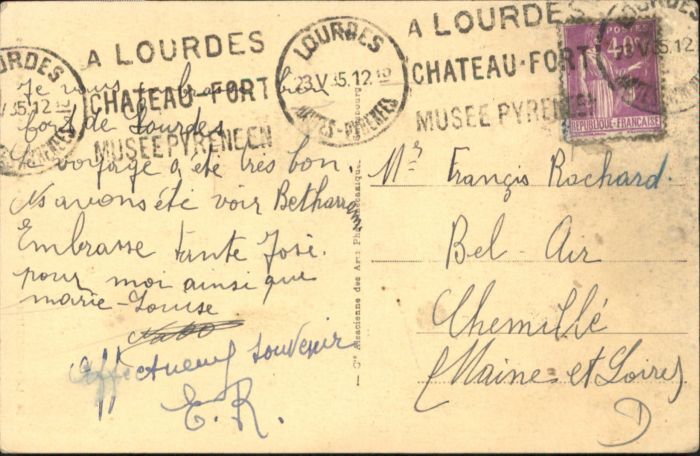 A LOURDES
CHATEAU-FORT
MUSÉE PYRÉNÉEN
LOURDES
23 V 35.12
HAUTES-PYRÉNÉES
A LOURDES
CHATEAU-FORT
MUSÉE PYRÉNÉEN
LOURDES
POSTES
40
REPUBLIQUE-FRANÇAISE
Je vous embrasse bien
fort de Lourdes
Le voyage a été très bon.
Ns avons été voir Betharram
Embrasse tante José.
pour moi ainsi que
marie-Louise
Affectueux souvenir
E. R.
Cie Alsacienne des Arts Photomécaniques
Mr François Rochard.
Bel-Air
Chemillé
(Maine et Loire)